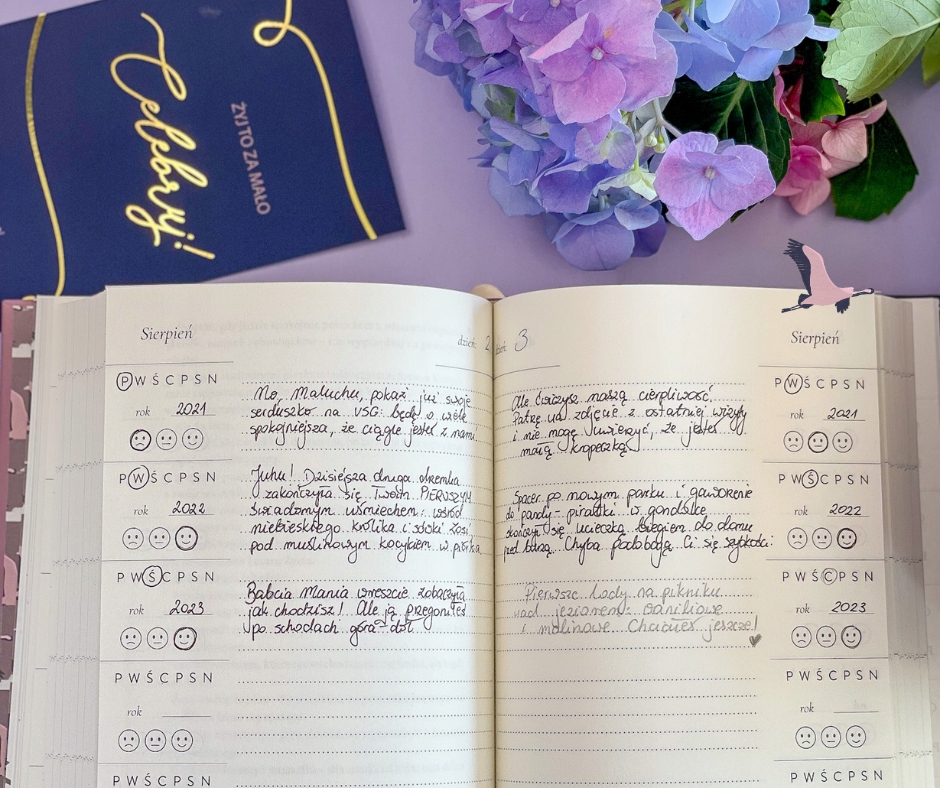 Celebruj!
ŻYJ TO ZA MAŁO
Sierpień
dzień: 2
P W Ś C P S N
rok 2021
No, Maluchu, pokaż już swoje
serduszko na USG. Będę o wiele
spokojniejsza, że ciągle jesteś z nami
P W Ś C P S N
rok 2022
Juhu! Dzisiejsza druga drzemka
zakończyła się Twoim PIERWSZYM
świadomym uśmiechem wśród
niebieskiego królika i
pod muślinowym kocykiem w
P W Ś C P S N
rok 2023
Babcia Mania wreszcie zobaczyła
jak chodzisz! Ale ją przegoniłeś
po schodach góra-dół
P W Ś C P S N
rok
P W Ś C P S N
dzień: 3
Sierpień
P W Ś C P S N
rok 2021
Ale ćwiczysz naszą cierpliwość.
Patrzę na zdjęcie z ostatniej wizyty
i nie mogę uwierzyć, że jesteś
małą kropeczką
P W Ś C P S N
rok 2022
Spacer po nowym parku i gaworzenie
do pandy - piratki w gondolce
skończył się ucieczką biegiem do domu
przed burzą. Chyba podobają Ci się szybkości
P W Ś C P S N
rok 2023
Pierwsze lody na pikniku
nad jeziorem: waniliowe
i malinowe. Chciałeś jeszcze!
P W Ś C P S N
rok
P W Ś C P S N